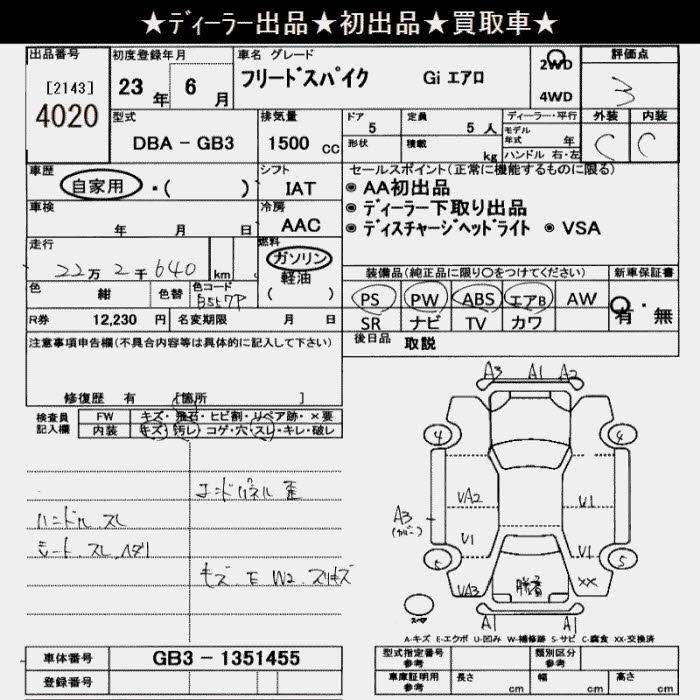 ★ディーラー出品★初出品★買取車★
出品番号 初度登録年月 車名 グレード 評価点
[2143] 23 年 6 月 フリードスパイク Gi エアロ 2WD 3
4020 4WD
型式 排気量 ドア 定員 ディーラー・平行 外装 内装
DBA - GB3 1500 cc 5 5 人 モデル年式 年 C C
形状 積載 kg ハンドル 右・左
車歴 シフト セールスポイント(正常に機能するものに限る)
自家用 ・( ) IAT ◉ AA初出品
車検 冷房 ◉ ディーラー下取り出品
年 月 日 AAC ◉ ディスチャージヘッドライト ◉ VSA
走行 燃料
22万2千640 km ガソリン 装備品(純正品に限り〇をつけてください) 新車保証書
軽油 PS PW ABS エアB AW 有・無
( ) SR ナビ TV カワ
色 紺 色替 色コード B557P
R券 12,230 円 名変期限 月 日 後日品 取説
注意事項申告欄(不具合内容等は具体的に記入して下さい)
修復歴 有 [箇所 ]
検査員記入欄 FW キズ・飛石・ヒビ割・リペア跡・×要
内装 キズ・汚レ・コゲ・穴・スレ・キレ・破レ
エンドパネル 歪
ハンドル スレ
シート スレ
キズ E W2 スリキズ
A3 A1 A2
4 4
VA2 V1
A3
(カバー)
V1 V1
5
VA3 XX
スペア A1 A1
A-キズ E-エクボ U-凹み W-補修跡 S-サビ C-腐食 XX-交換済
車体番号 GB3 - 1351455 型式指定番号 参考 類別区分 参考
登録番号 車庫証明用 参考 長さ cm 幅 cm 高さ cm